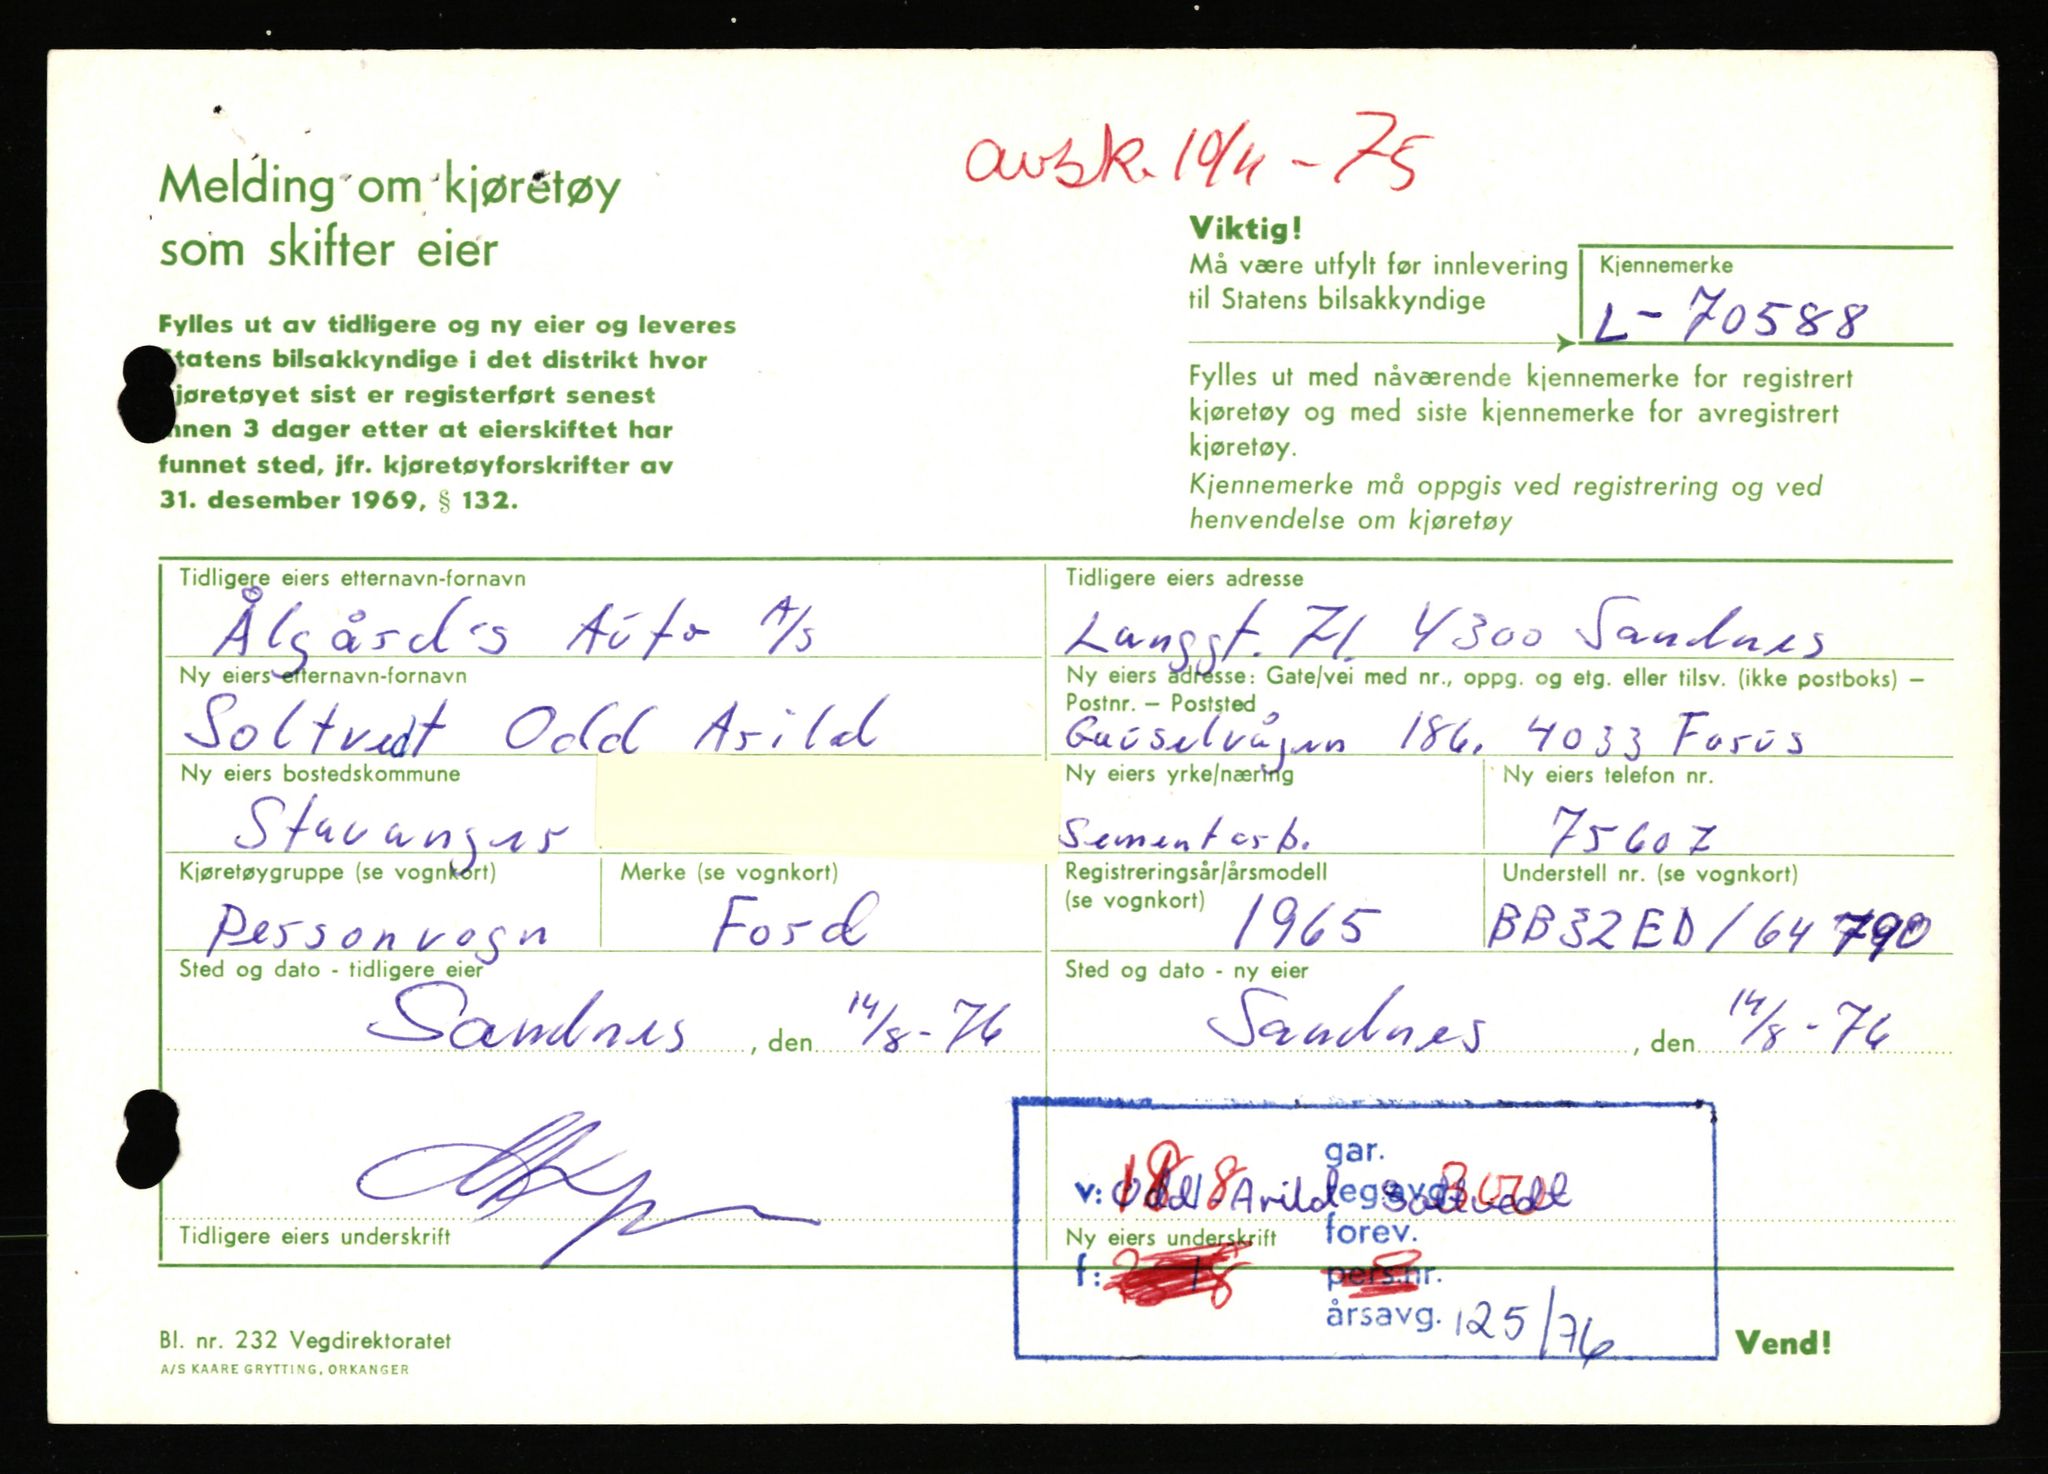 avsk. 10/11 - 75
Melding om kjøretøy
som skifter eier
Fylles ut av tidligere og ny eier og leveres
Statens bilsakkyndige i det distrikt hvor
kjøretøyet sist er registerført senest
innen 3 dager etter at eierskiftet har
funnet sted, jfr. kjøretøyforskrifter av
31. desember 1969, § 132.
Viktig!
Må være utfylt før innlevering
til Statens bilsakkyndige
Kjennemerke
L-70588
Fylles ut med nåværende kjennemerke for registrert
kjøretøy og med siste kjennemerke for avregistrert
kjøretøy.
Kjennemerke må oppgis ved registrering og ved
henvendelse om kjøretøy
Tidligere eiers etternavn-fornavn
Ålgård's Auto A/S
Tidligere eiers adresse
Langgt. 71. 4300 Sandnes
Ny eiers etternavn-fornavn
Soltvedt Odd Arild
Ny eiers adresse: Gate/vei med nr., oppg. og etg. eller tilsv. (ikke postboks) –
Postnr. – Poststed
Gauselvågen 186. 4033 Forus
Ny eiers bostedskommune
Stavanger
Ny eiers yrke/næring
Sementarb.
Ny eiers telefon nr.
75607
Kjøretøygruppe (se vognkort)
Personvogn
Merke (se vognkort)
Ford
Registreringsår/årsmodell
(se vognkort)
1965
Understell nr. (se vognkort)
BB32ED/64790
Sted og dato - tidligere eier
Sandnes, den 14/8-76
Sted og dato - ny eier
Sandnes, den 14/8-76
gar.
v: Odd Arild Soltvedt
forev.
Tidligere eiers underskrift
Ny eiers underskrift
f:
pers.nr.
årsavg. 125/76
Bl. nr. 232 Vegdirektoratet
A/S KAARE GRYTTING, ORKANGER
Vend!